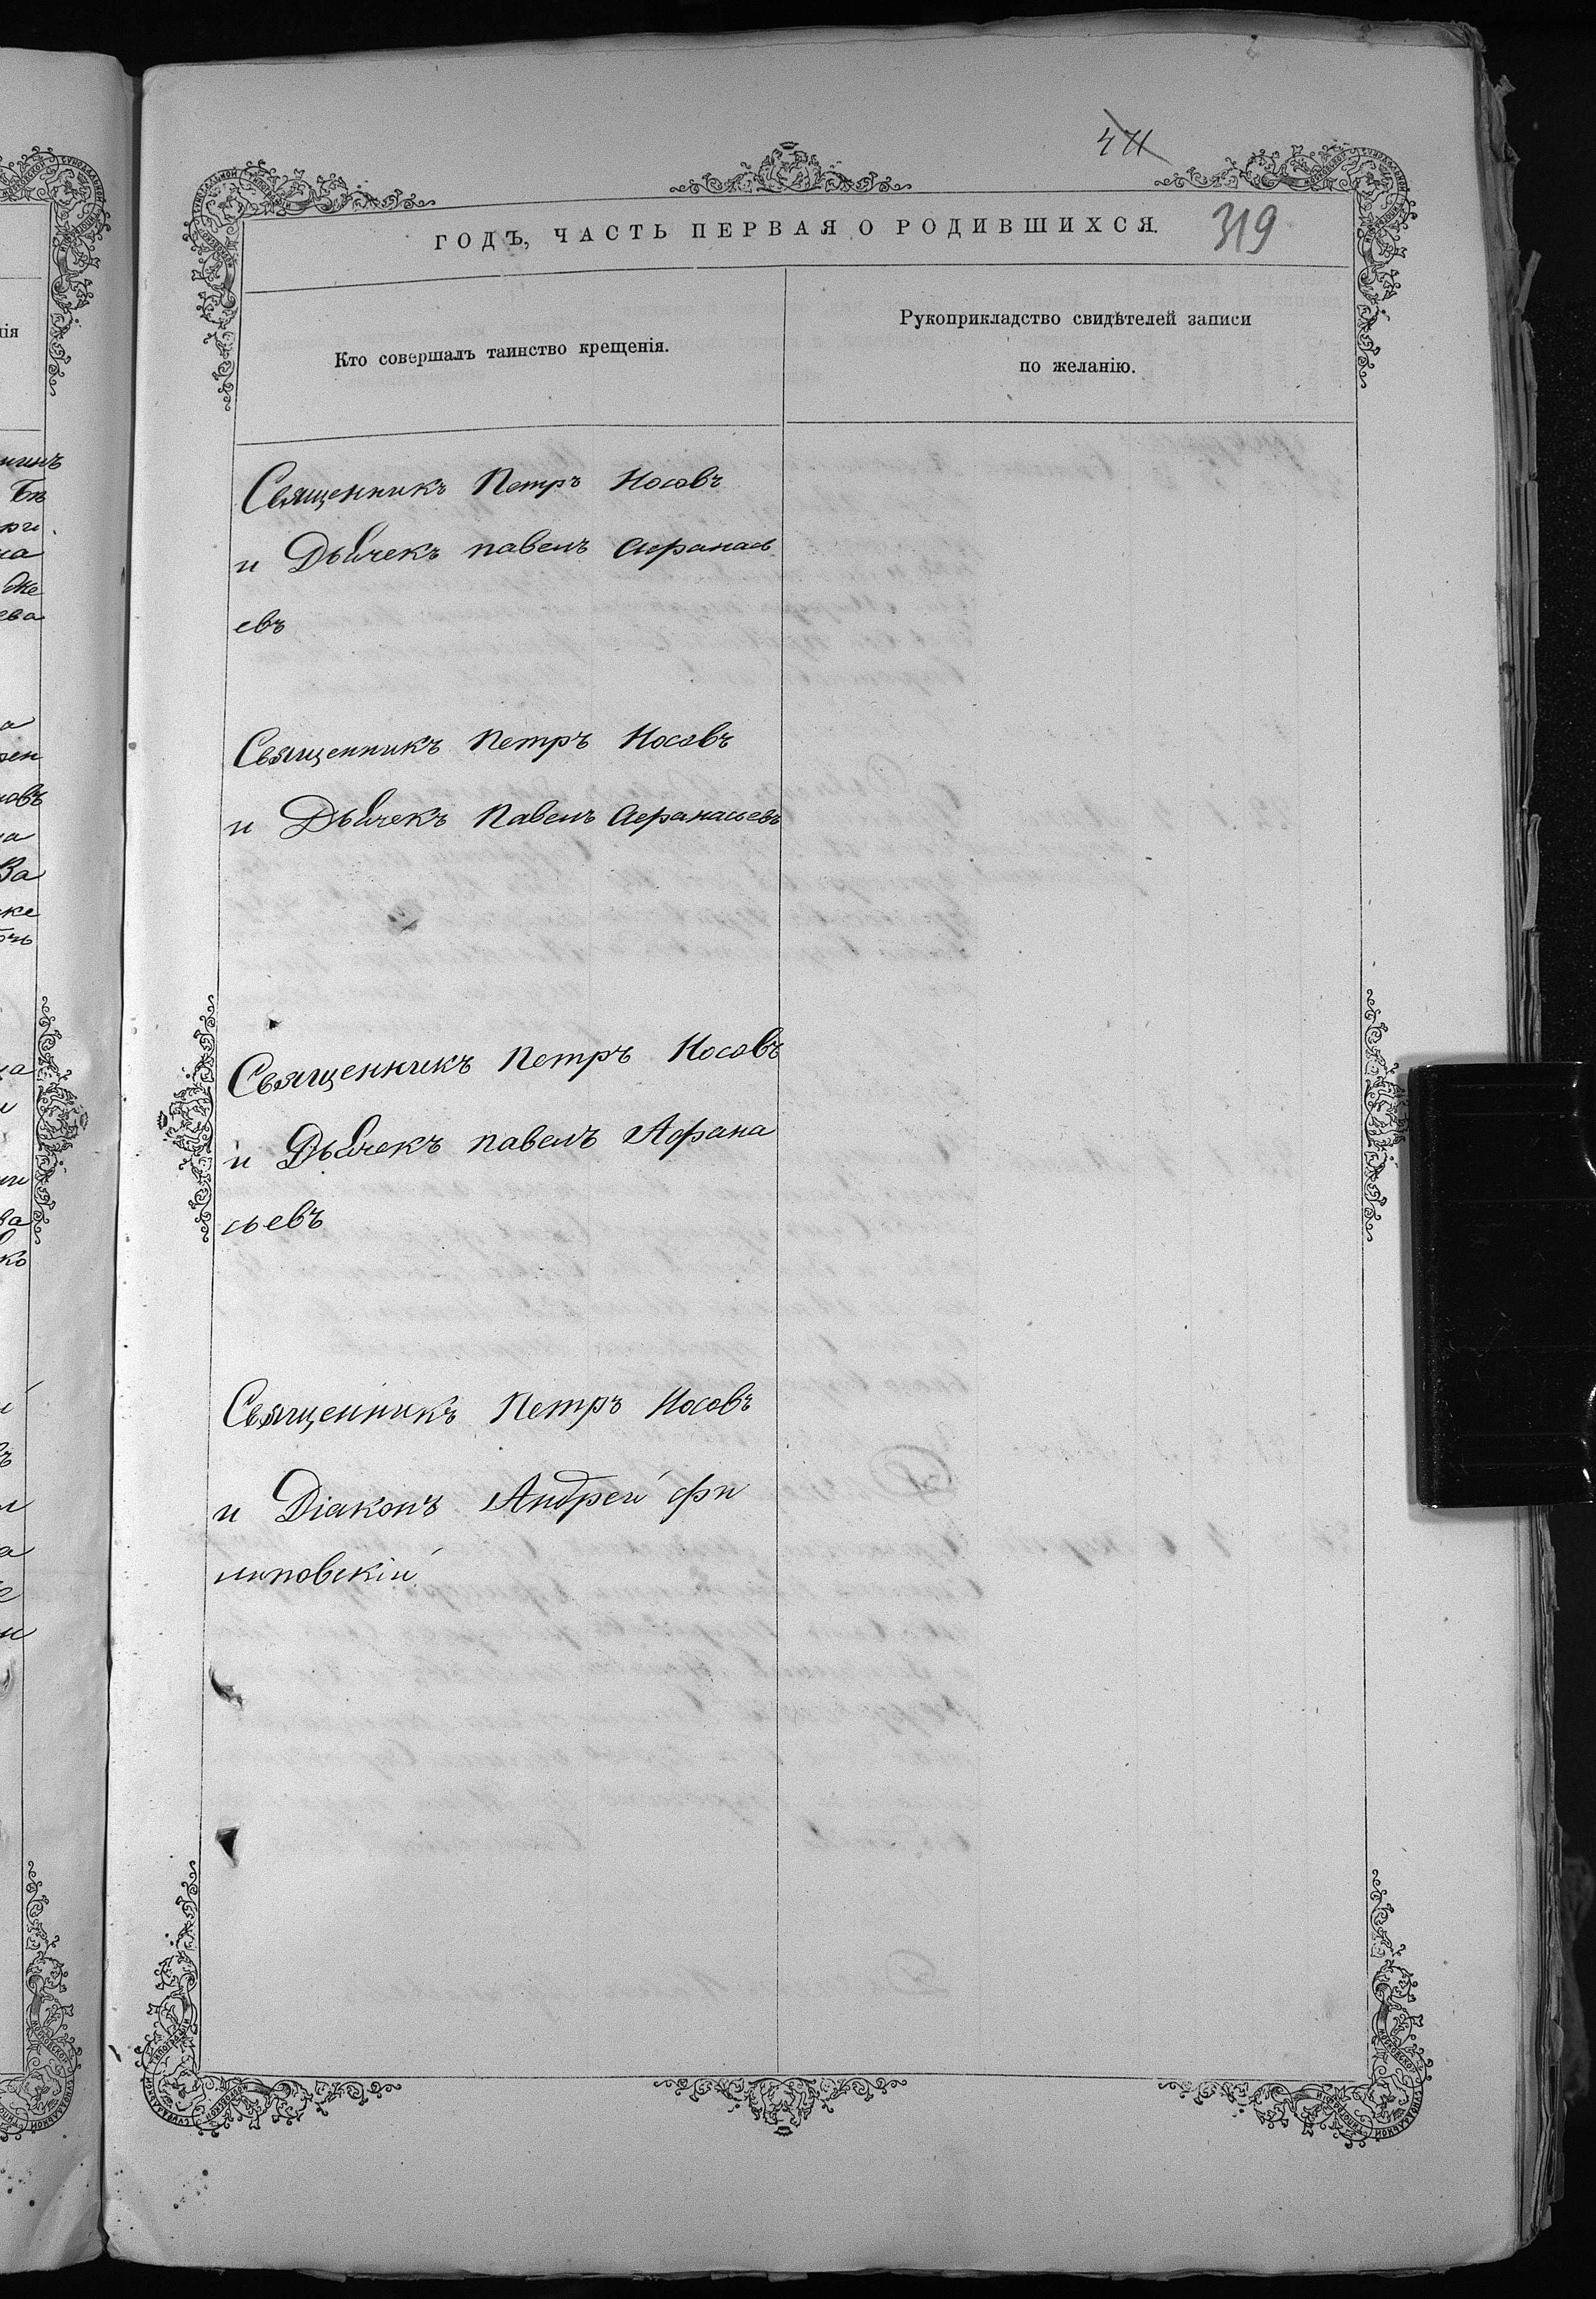 319
ГОДЪ, ЧАСТЬ ПЕРВАЯ О РОДИВШИХСЯ.
Кто совершалъ таинство крещенія.
Рукоприкладство свидѣтелей записи
по желанію.
Священникъ Петръ Носовъ
и Дьячекъ павелъ Афанась
евъ
Священникъ Петръ Носовъ
и Дьячекъ Павелъ Афанасьевъ
Священникъ Петръ Носовъ
и Дьячекъ павелъ Афана
сьевъ
Священникъ Петръ Носовъ
и Діаконъ Андрей Фи
липовскій